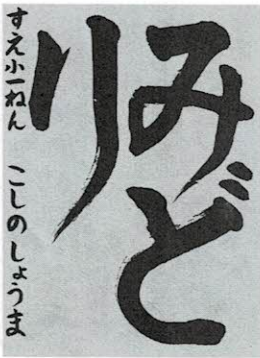 みど
り
すえ小一ねん こしのしょうま